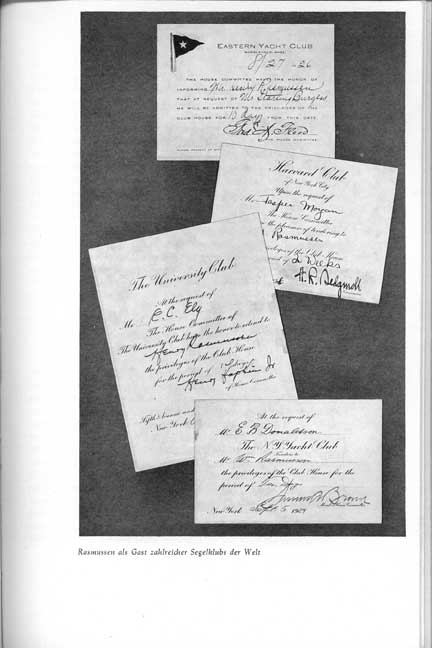 EASTERN YACHT CLUB
8/27 - 26
THE HOUSE COMMITTEE HAVE THE HONOR OF
INFORMING Mr Henry Rasmussen
THAT AT REQUEST OF Mr Starling Burgess
HE WILL BE ADMITTED TO THE PRIVILEGES OF THE
CLUB HOUSE FOR Days FROM THIS DATE
Harvard Club
of New York City
Upon the request of
Mr. Jasper Morgan
The House Committee
the pleasure of tendering to
Rasmussen
privileges of the Club House
2 Weeks
The University Club
At the request of
Mr. E. C. Ely
The House Committee of
The University Club have the honor to extend to
Henry Rasmussen
the privileges of the Club House
for the period of
of House Committee
Fifth Avenue and
New York
At the request of
Mr E B Donaldson
The N.Y. Yacht Club
Mr Rasmussen
the privileges of the Club House for the
period of Ten Days
New York Sept 5 1929
Rasmussen als Gast zahlreicher Segelklubs der Welt